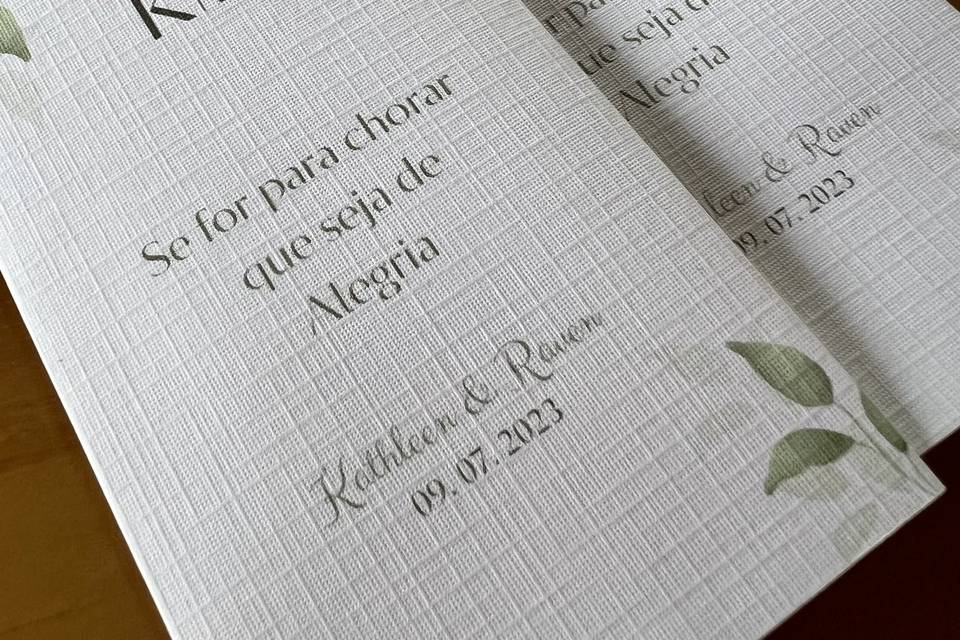 Se for para chorar
que seja de
Alegria
Kathleen & Raven
09. 07. 2023
que seja
Alegria
& Raven
09. 07. 2023